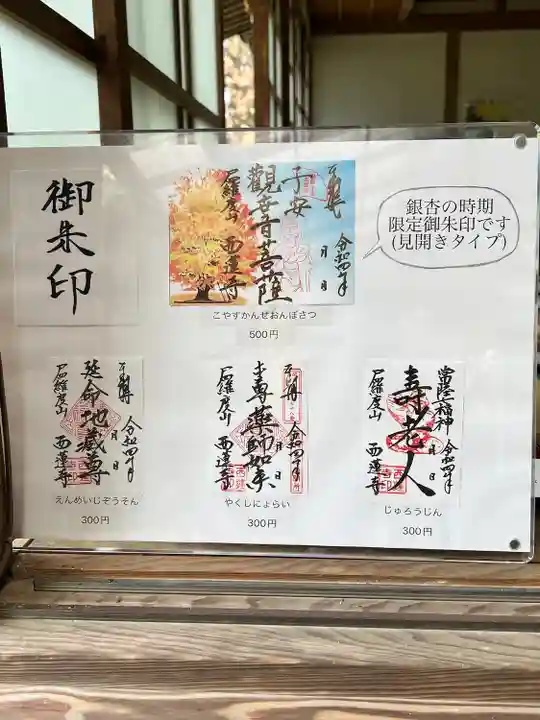 御朱印
奉拝
令和四年
月 日
子安
觀世音菩薩
尸羅度山 西蓮寺
銀杏の時期
限定御朱印です
(見開きタイプ)
こやすかんぜおんぼさつ
500円
奉拝
令和四年
月 日
延命地蔵尊
尸羅度山 西蓮寺
えんめいじぞうそん
300円
奉拝
令和四年
月 日
本尊薬師如来
尸羅度山 西蓮寺
やくしにょらい
300円
常陸七福神
令和四年
月 日
寿老人
尸羅度山 西蓮寺
じゅろうじん
300円